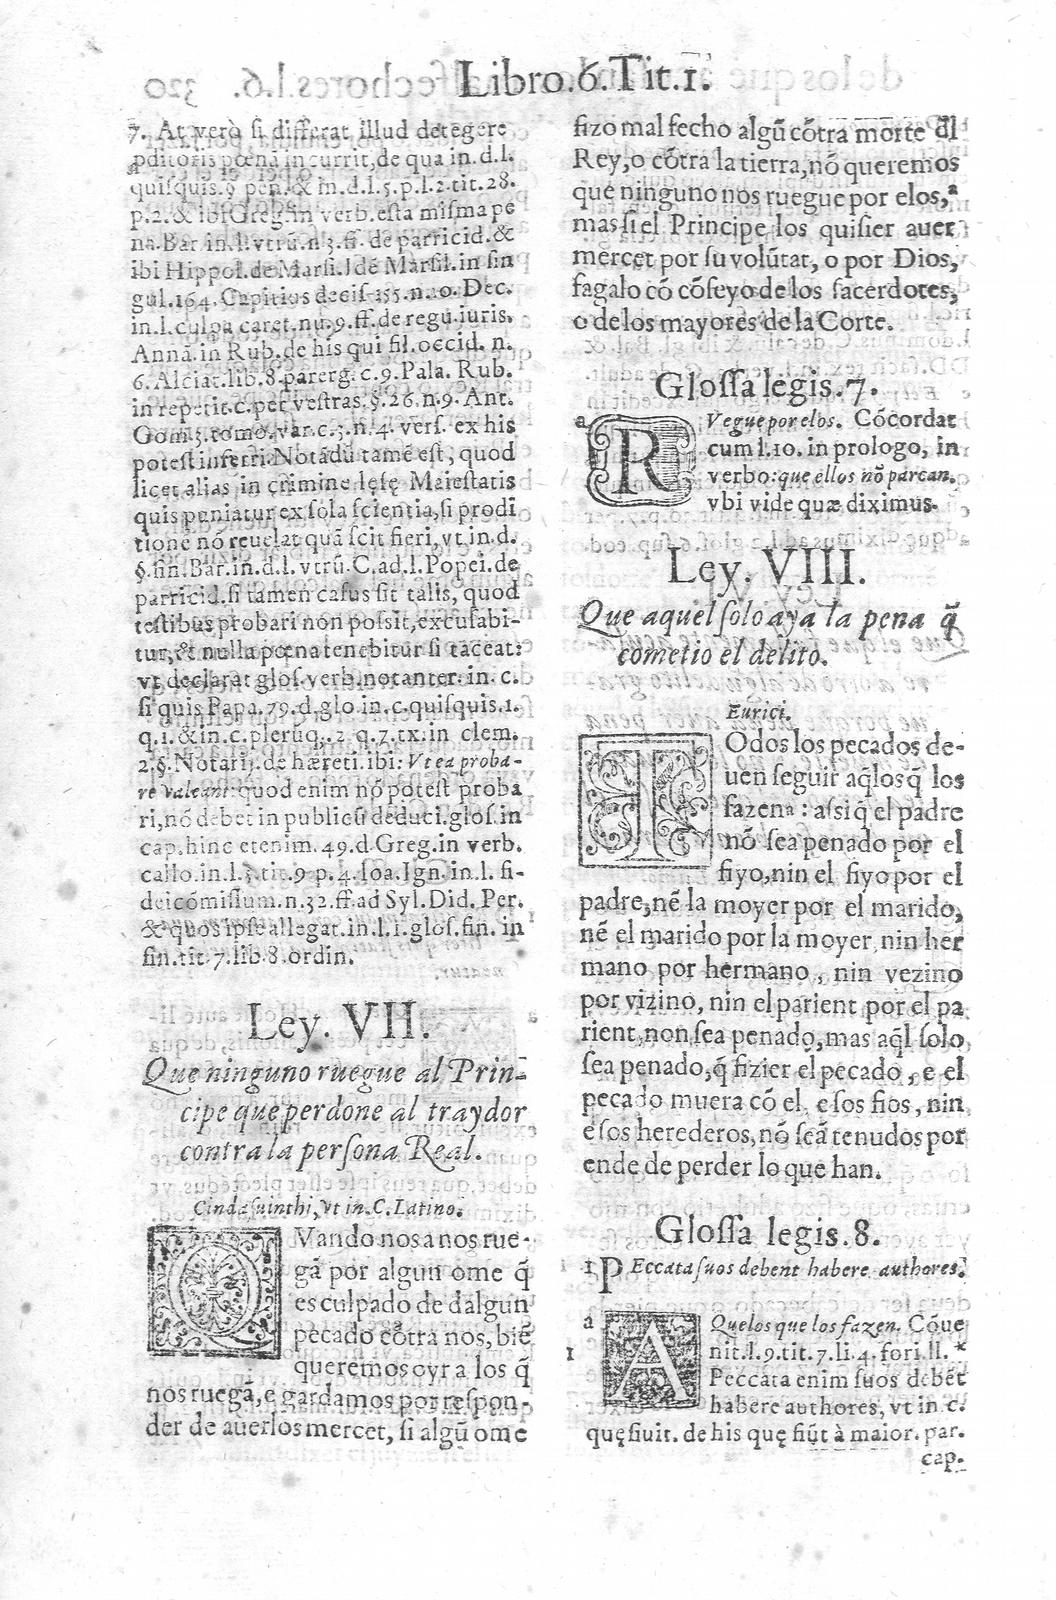 Libro.6.Tit.1.
7. At verò si differat illud detegere
pditoris pœnã incurrit, de qua in.d.l.
quisquis.§ pen. & in.d.l.5.p.l.2.tit.28.
p.2.& ibi Greg.in verb.esta misma pe
na.Bar.in.l.vtrũ.n.3.ff.de parricid.&
ibi Hippol.de Marsi.l de Marsil.in sin
gul.164.Capitius decis.155.n.20.Dec.
in.l.culpa caret.nu.9.ff.de regu.iuris.
Anna.in Rub.de his qui fil.occid.n.
6.Alciat.lib.8.parerg.c.9.Pala.Rub.
in repetit.c.per vestras.§.26.n.9.Ant.
Gom.3.tomo.var.c.3.n.4.vers. ex his
potest inferri.Notãdũ tamẽ est, quod
licet alias in crimine lęsę Maiestatis
quis puniatur ex sola scientia, si prodi
tionẽ nõ reuelat quã scit fieri, vt in.d.
§.fin.Bar.in.d.l.vtrũ.C.ad.l.Popei.de
parricid.si tamen casus sit talis, quod
testibus probari non possit, excusabi-
tur, & nulla pœna tenebitur si taceat:
vt declarat glos.verb.notanter.in.c.
si quis Papa.79.d.glo.in.c.quisquis.1.
q.1.&in.c.plerũq;.2.q.7.tx.in clem.
2.§.Notarij.de hæreti.ibi: Vt ea proba-
re valeant: quod enim nõ potest proba
ri, nõ debet in publicũ deduci.glos.in
cap.hinc etenim.49.d.Greg.in verb.
callo.in.l.5.tit.9.p.4.Ioa.Ign.in.l.fi-
deicõmissum.n.32.ff.ad Syl.Did.Per.
& quos ipse allegat.in.l.i.glos.fin. in
fin.tit.7.lib.8.ordin.
Ley. VII.
Que ninguno ruegue al Prin-
cipe que perdone al traydor
contra la persona Real.
Cindasuinthi, vt in.C.Latino.
QVando nos a nos rue-
gã por algun ome q̃
es culpado de dalgun
pecado cõtra nos, biẽ
queremos oyr a los q̃
nos ruegã, e gardamos por respon-
der de auerlos mercet, si algũ ome
fizo mal fecho algũ cõtra morte dl
Rey, o cõtra la tierra, nõ queremos
que ninguno nos ruegue por elos,ª
mas si el Principe los quisier auer
mercet por su volũtat, o por Dios,
fagalo cõ cõseyo de los sacerdotes,
o de los mayores de la Corte.
Glossa legis.7.
a RVegue por elos. Cõcordat
cum l.10. in prologo, in
verbo: que ellos nõ parcan.
vbi vide quæ diximus.
Ley. VIII.
Que aquel solo aya la pena q̃
cometio el delito.
Eurici.
TOdos los pecados de-
uen seguir aq̃los q̃ los
fazenª: asi q̃ el padre
nõ sea penado por el
fiyo, nin el fiyo por el
padre, nẽ la moyer por el marido,
nẽ el marido por la moyer, nin her
mano por hermano, nin vezino
por vizino, nin el parient por el pa
rient, non sea penado, mas aq̃l solo
sea penado, q̃ fizier el pecado, e el
pecado muera cõ el, e sos fios, nin
e sos herederos, nõ seã tenudos por
ende de perder lo que han.
Glossa legis.8.
1 PEccata suos debent habere authores.
a AQuelos que los fazen. Cõue
1 nit.l.9.tit.7.li.4.fori.ll.*
Peccata enim suos debẽt
habere authores, vt in c.
quę fiuit. de his quę fiũt à maior. par.
cap.